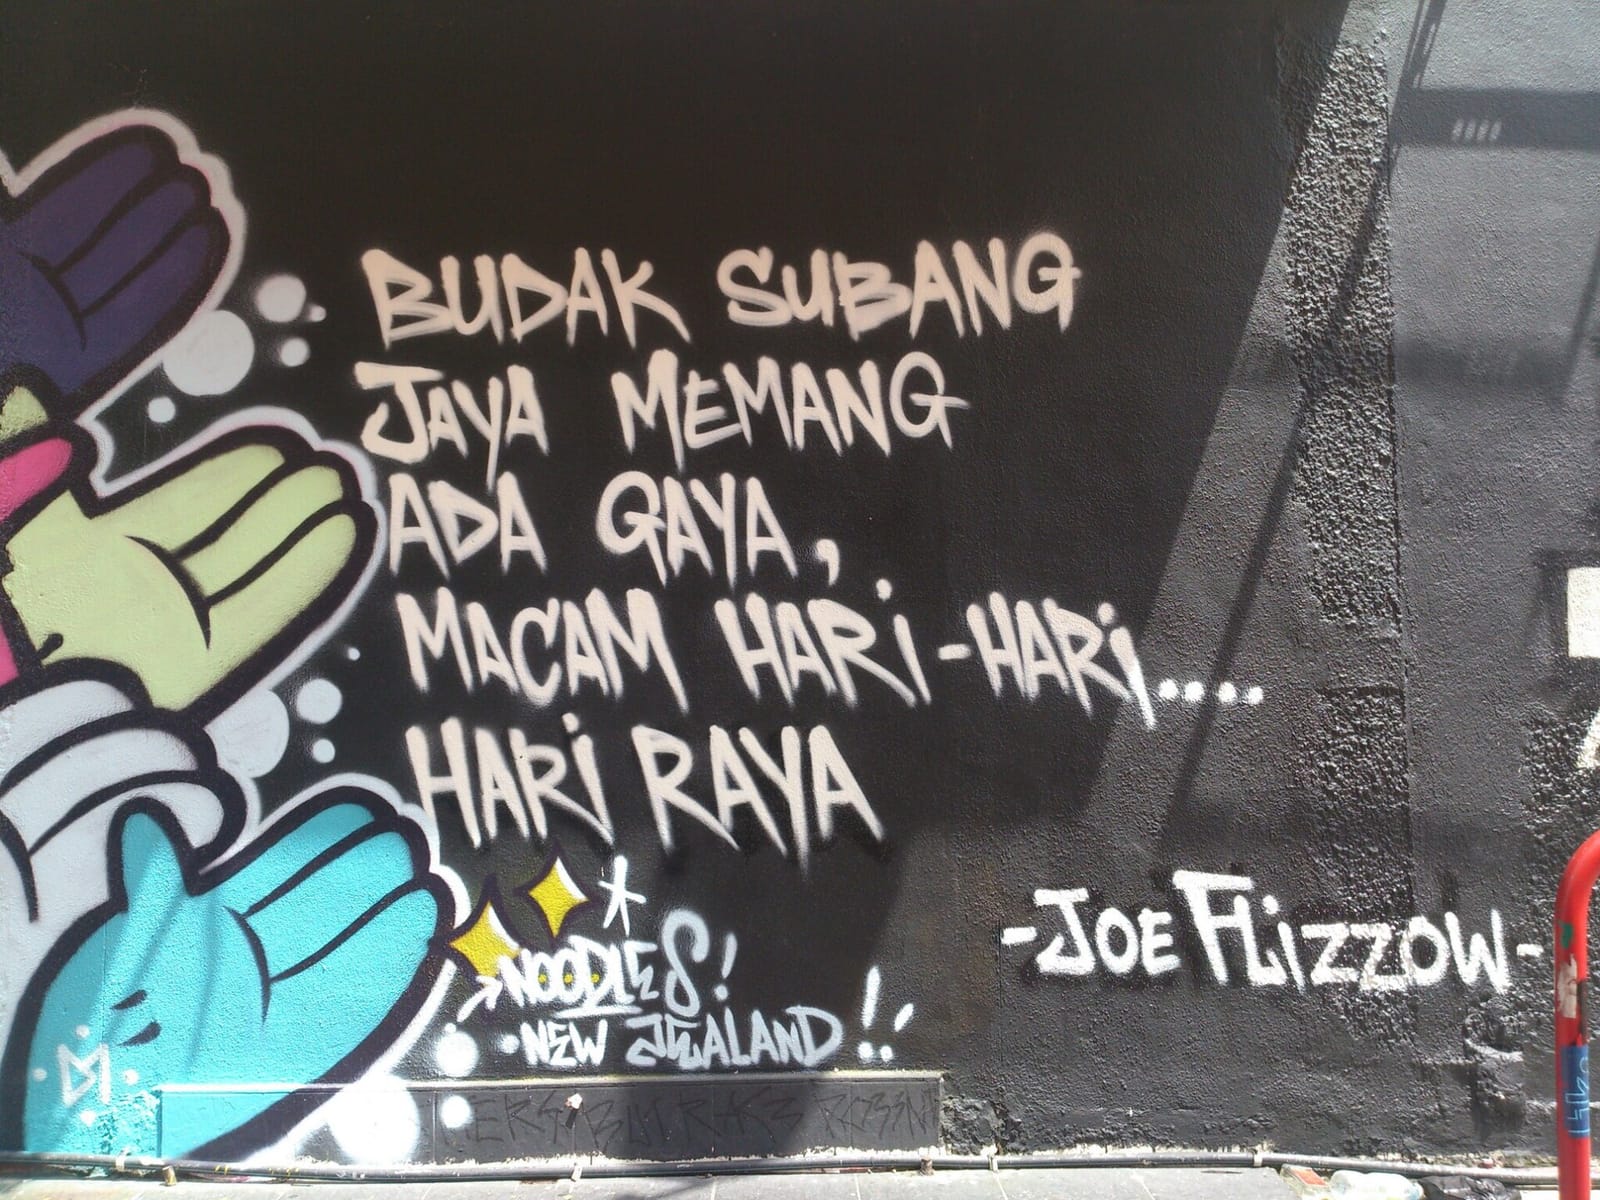 BUDAK SUBANG
JAYA MEMANG
ADA GAYA,
MACAM HARI-HARI....
HARI RAYA
-JOE FLIZZOW-
NOODLES!
NEW ZEALAND!!